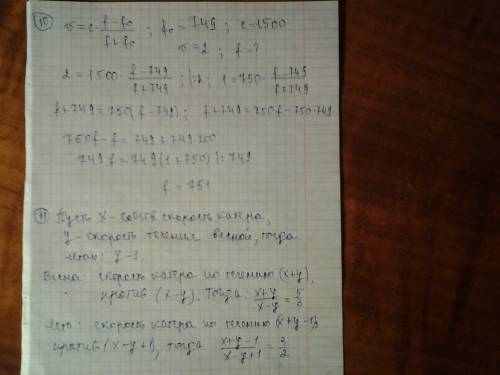 10) v = c · (f - f₀)/(f + f₀) ; f₀ = 749 ; c = 1500
v = 2 ; f - ?
2 = 1500 · (f - 749)/(f + 749) ; |:2 ; 1 = 750 · (f - 749)/(f + 749)
f + 749 = 750(f - 749) ; f + 749 = 750f - 750·749
750f - f = 749 + 749·750
749f = 749(1 + 750) |: 749
f = 751
11) Пусть x - собств скорость катера,
y - скорость течения весной, тогда
летом: y - 1.
Весна: скорость катера по течению (x+y),
против (x-y), Тогда: (x+y)/(x-y) = 5/3
Лето: скорость катера по течению (x+y-1),
против (x-y+1), тогда (x+y-1)/(x-y+1) = 3/2